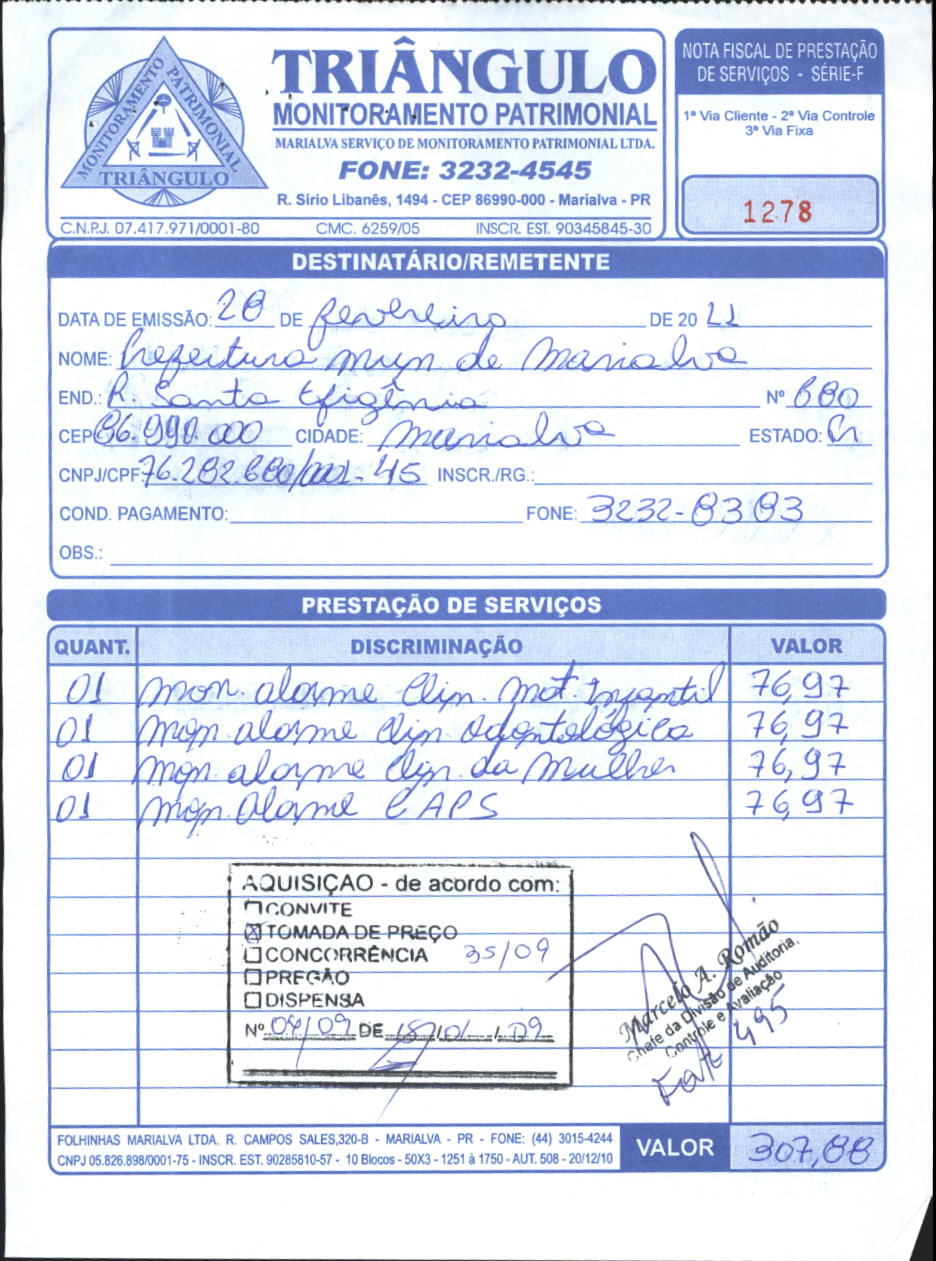 MONITORAMENTO PATRIMONIAL
TRIÂNGULO
TRIÂNGULO
MONITORAMENTO PATRIMONIAL
MARIALVA SERVIÇO DE MONITORAMENTO PATRIMONIAL LTDA.
FONE: 3232-4545
R. Sírio Libanês, 1494 - CEP 86990-000 - Marialva - PR
C.N.P.J. 07.417.971/0001-80 CMC. 6259/05 INSCR. EST. 90345845-30
NOTA FISCAL DE PRESTAÇÃO
DE SERVIÇOS - SÉRIE-F
1ª Via Cliente - 2ª Via Controle
3ª Via Fixa
1278
DESTINATÁRIO/REMETENTE
DATA DE EMISSÃO: 28 DE fevereiro DE 20 11
NOME: Prefeitura Mun de Marialva
END.: R. Santa Efigênia Nº 680
CEP 86.990.000 CIDADE: Marialva ESTADO: Pr
CNPJ/CPF 76.282.680/0001-45 INSCR./RG.:
COND. PAGAMENTO: FONE: 3232-8383
OBS.:
PRESTAÇÃO DE SERVIÇOS
QUANT. DISCRIMINAÇÃO VALOR
01 Mon. alarme Clin. Mat. Infantil 76,97
01 Mon. alarme Clin Odontológica 76,97
01 Mon. alarme Clin. da Mulher 76,97
01 Mon. Alarme CAPS 76,97
AQUISIÇÃO - de acordo com:
CONVITE
TOMADA DE PREÇO
CONCORRÊNCIA 35/09
PREGÃO
DISPENSA
Nº 04/09 DE 15/01/09
Marcelo A. Romão
Chefe da Divisão de Auditoria,
Controle e Avaliação
Fonte 495
FOLHINHAS MARIALVA LTDA. R. CAMPOS SALES,320-B - MARIALVA - PR - FONE: (44) 3015-4244
CNPJ 05.826.898/0001-75 - INSCR. EST. 90285810-57 - 10 Blocos - 50X3 - 1251 à 1750 - AUT. 508 - 20/12/10
VALOR 307,88